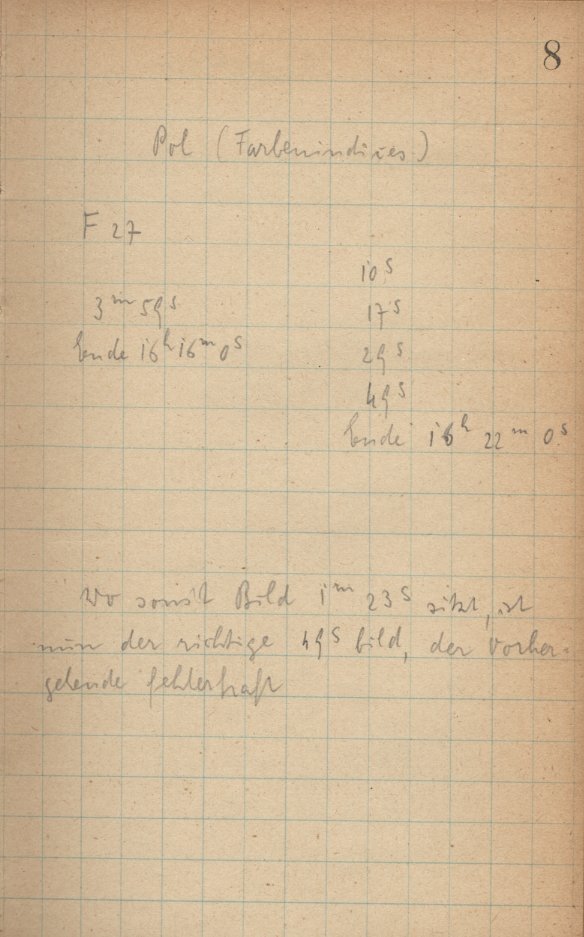 8
Pol (Farbenindices)
F 27
10s
3m 59s
17s
Ende 16h 16m 0s
29s
49s
Ende 16h 22m 0s
Wo sonst Bild 1m 23s sitzt, ist
nun der richtige 49s Bild, der vorher-
gehende fehlerhaft